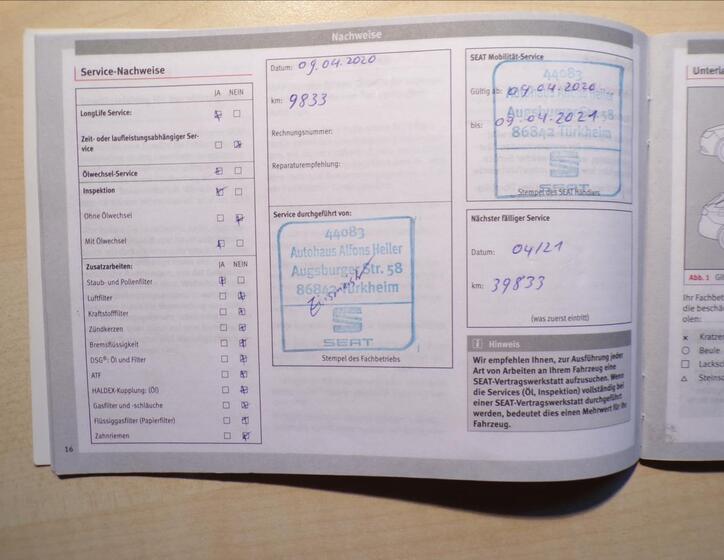 Nachweise
Service-Nachweise
JA NEIN
LongLife Service:
Zeit- oder laufleistungsabhängiger Ser-
vice
Ölwechsel-Service
Inspektion
Ohne Ölwechsel
Mit Ölwechsel
Zusatzarbeiten: JA NEIN
Staub- und Pollenfilter
Luftfilter
Kraftstofffilter
Zündkerzen
Bremsflüssigkeit
DSG®: Öl und Filter
ATF
HALDEX-Kupplung: (Öl)
Gasfilter und -schläuche
Flüssiggasfilter (Papierfilter)
Zahnriemen
16
Datum: 09.04.2020
km: 9833
Rechnungsnummer:
Reparaturempfehlung:
Service durchgeführt von:
44083
Autohaus Alfons Heiler
Augsburger Str. 58
86842 Türkheim
SEAT
Stempel des Fachbetriebs
SEAT Mobilität-Service
44083
Gültig ab: 09.04.2020
Autohaus Alfons Heiler
Augsburger Str. 58
bis: 09.04.2021
86842 Türkheim
SEAT
Stempel des SEAT Händlers
Nächster fälliger Service
Datum: 04/21
km: 39833
(was zuerst eintritt)
i Hinweis
Wir empfehlen Ihnen, zur Ausführung jeder
Art von Arbeiten an Ihrem Fahrzeug eine
SEAT-Vertragswerkstatt aufzusuchen. Wenn
die Services (Öl, Inspektion) vollständig bei
einer SEAT-Vertragswerkstatt durchgeführt
werden, bedeutet dies einen Mehrwert für Ihr
Fahrzeug.
Unterla
Abb. 1
Ihr Fachbet
die beschä
olen:
Kratze
Beule
Lacksc
Steinsc